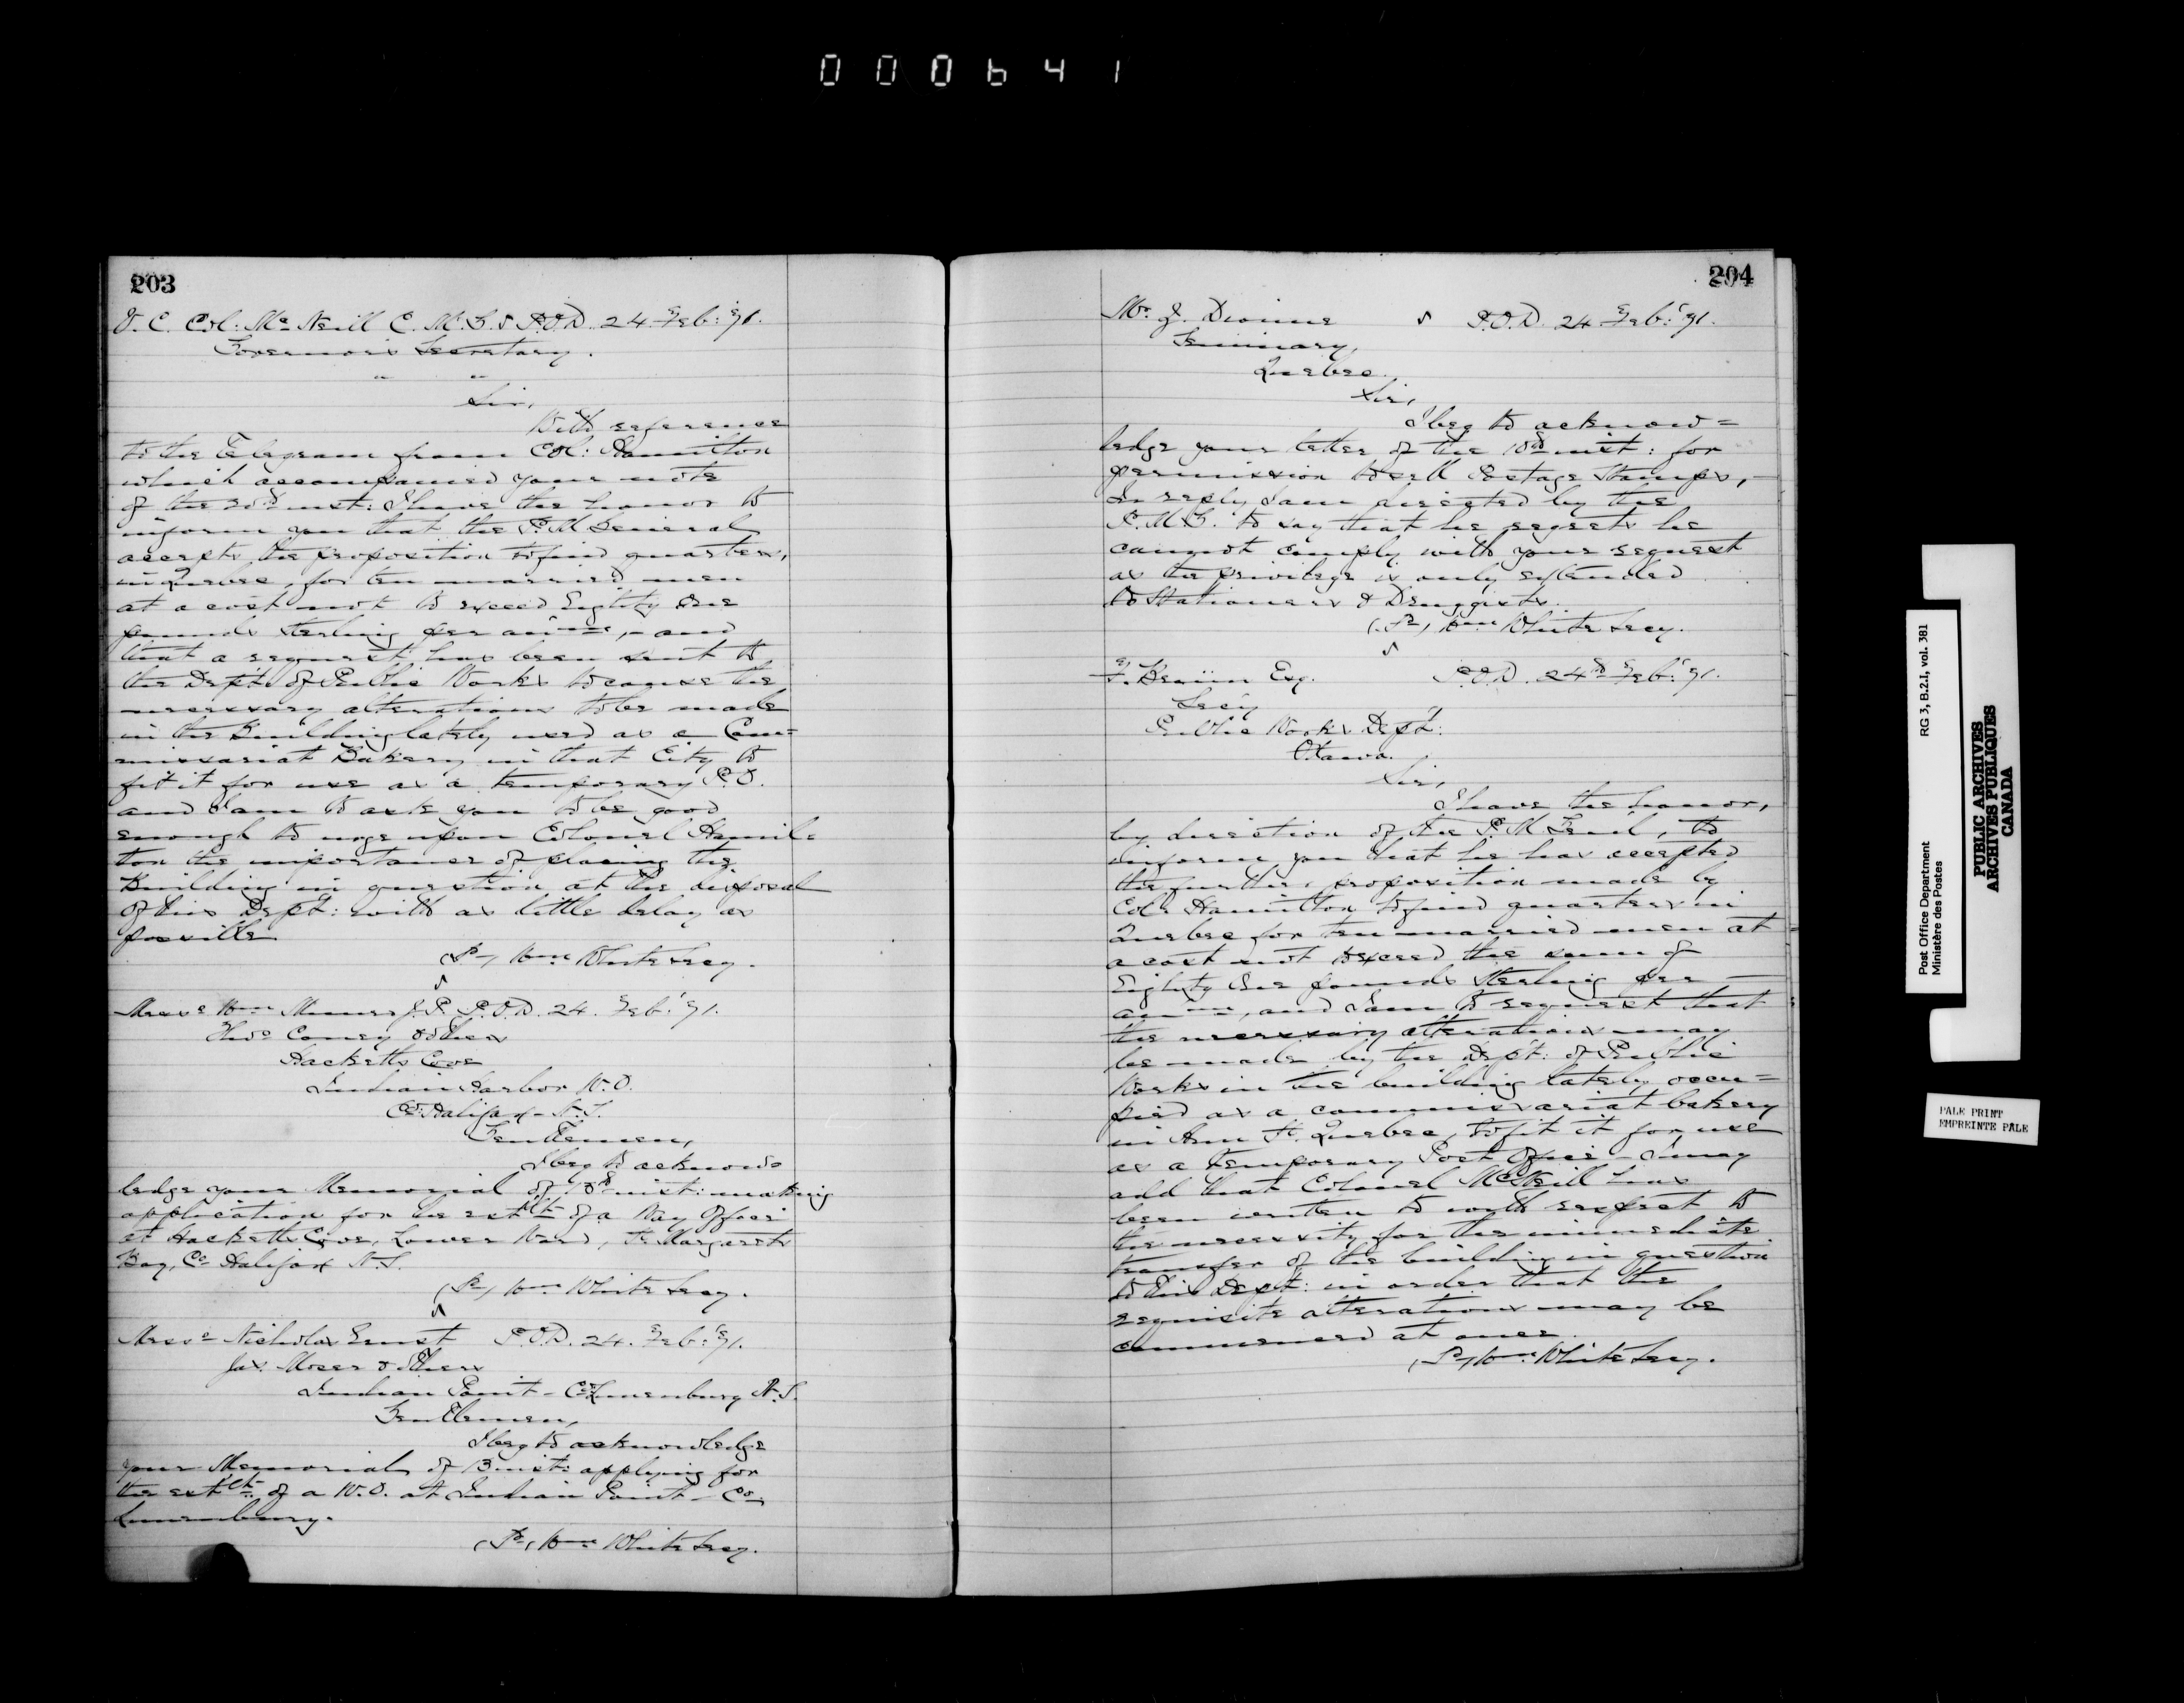 000641
203
V. C. Col: Mc Neill C. M. G. P.O.D. 24 Feb: '71.
Governor's Secretary.
" "
Sir,
With reference
to the Telegram from Col: Hamilton
which accompanied your note
of the 20th inst: I have the honor to
inform you that the P. M. General
accepts the proposition to find quarters,
in Quebec, for ten married men
at a cost not to exceed Eighty one
pounds Sterling per annum, - and
that a request has been sent to
the Dept. of Public Works to cause the
necessary alterations to be made
in the Building lately used as a Com=
missariat Bakery in that City to
fit it for use as a temporary P.O.
and I am to ask you to be good
enough to urge upon Colonel Hamil=
ton the importance of placing the
Building in question at the disposal
of this Dept: with as little delay as
possible
(Sd) Wm White Secy.
Messrs Wm Munro J.P. P.O.D. 24. Feb: '71.
Thos Coney & others
Hacketts Cove
Indian Harbor W.O.
Co: Halifax - N.S.
Gentlemen,
I beg to acknow=
ledge your Memorial of 10th inst: making
application for the estt of a Way Office
at Hacketts Cove, Lower Ward, St Margarets
Bay, Co Halifax N.S.
(Sd) Wm White Secy.
Messrs Nicholas Ernst P.O.D. 24. Feb: '71.
Jas. Moser & others
Indian Point - Co: Lunenburg N.S.
Gentlemen,
I beg to acknowledge
your Memorial of 13 inst: applying for
the estt of a W.O. at Indian Point - Co:
Lunenburg.
(Sd) Wm White Secy.
204
Mr J. Dionne P.O.D. 24 Feb: '71.
Seminary,
Quebec.
Sir,
I beg to acknow=
ledge your letter of the 10th inst: for
permission to sell Postage Stamps, -
In reply I am directed by the
P.M.G. to say that he regrets he
cannot comply with your request
as the privilege is only extended
to Stationers & Druggists.
(Sd) Wm White Secy.
F. Braün Esq. P.O.D. 24th Feb: '71.
Secy
Public Works Dept:
Ottawa.
Sir,
I have the honor,
by direction of the P. M. Genl, to
inform you that he has accepted
the further proposition made by
Col: Hamilton to find quarters in
Quebec for ten married men at
a cost not to exceed the sum of
Eighty One pounds Sterling per
annum, and I am to request that
the necessary alterations may
be made by the Dept: of Public
Works in the building lately occu=
pied as a commissariat bakery
in Ann St. Quebec, to fit it for use
as a temporary Post Office - I may
add that Colonel McNeill has
been written to with respect to
the necessity for the immediate
transfer of the building in question
to this Dept: in order that the
requisite alterations may be
commenced at once.
(Sd) Wm White Secy.
Post Office Department RG 3, B.2.I, vol. 381
Ministère des Postes
PUBLIC ARCHIVES
ARCHIVES PUBLIQUES
CANADA
PALE PRINT
EMPREINTE PALE